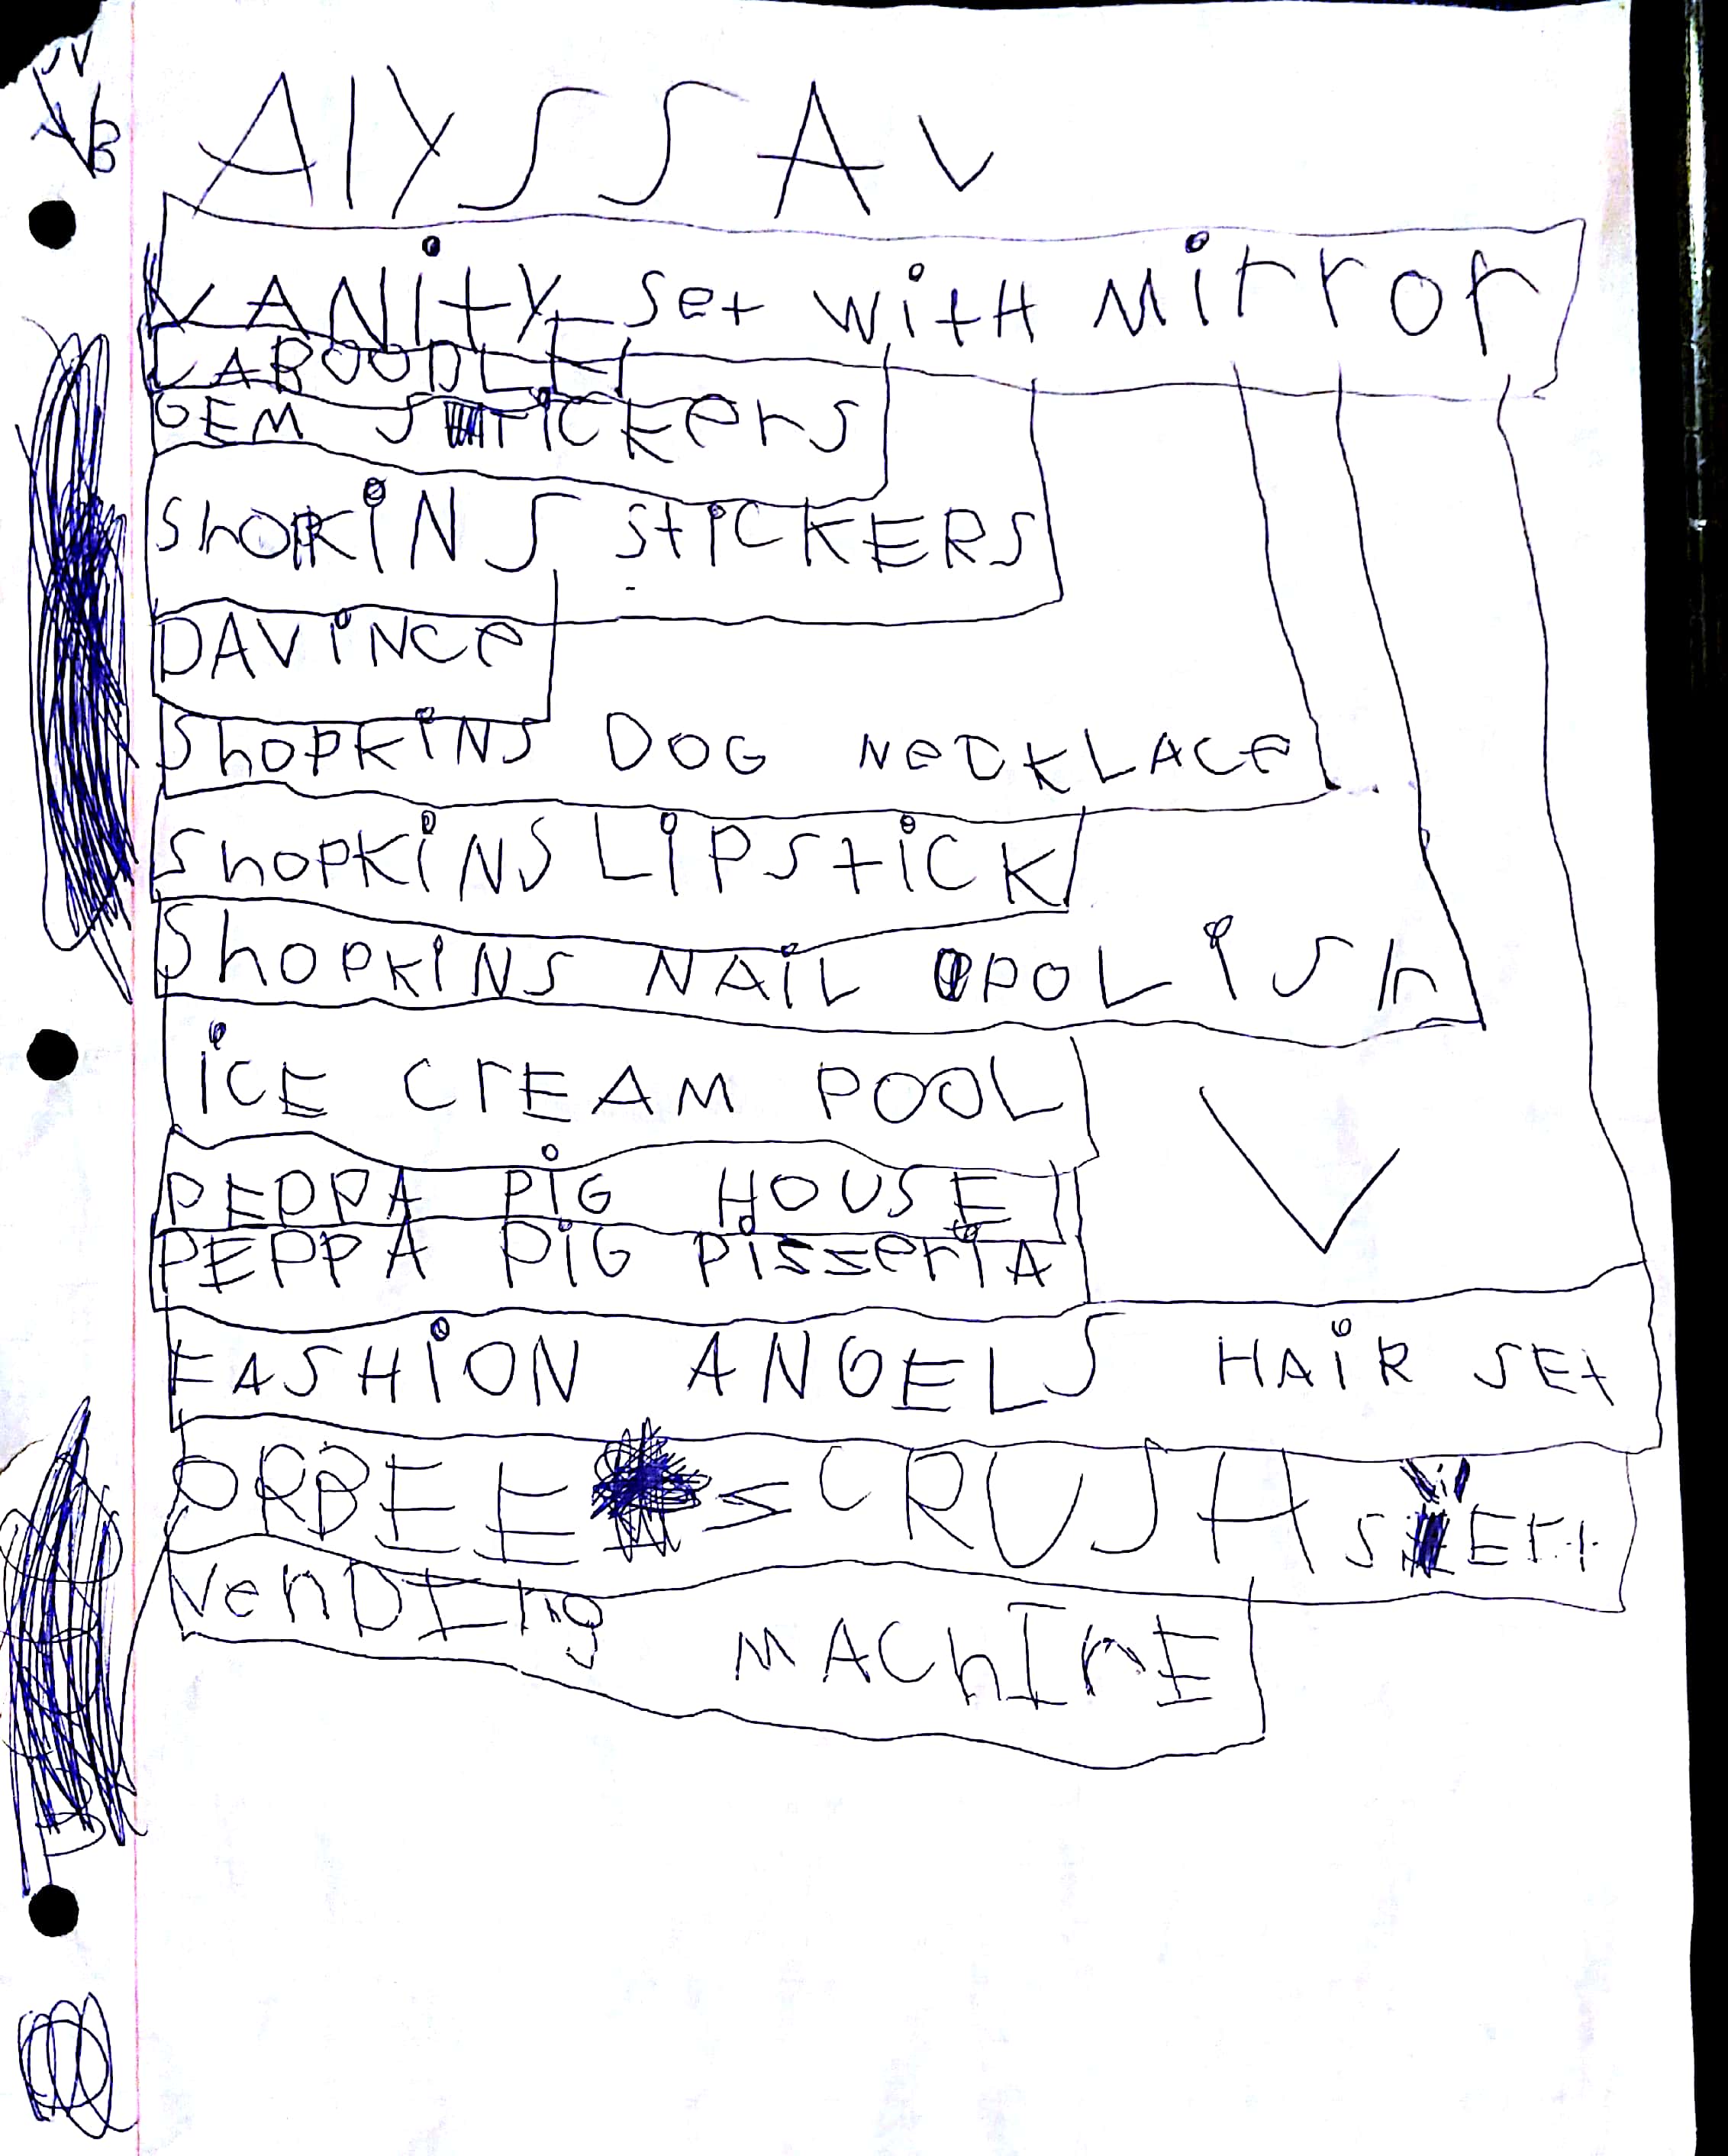 AlYSSA V
VANitY set with Mirror
CABOODLE
GEM STicKers
ShopKiNS StiCKERS
DAViNce
ShopKiNS DOG NeCKLACe
ShopKiNS LiPStiCK
ShopKiNS NAiL POLish
iCE CrEAM POOL
PEPPA PiG HOUSE
PEPPA PiG PisseriA
FASHiON ANGELS HAiR SEt
ORBEE S CRUSH
VenDIng MAChInE